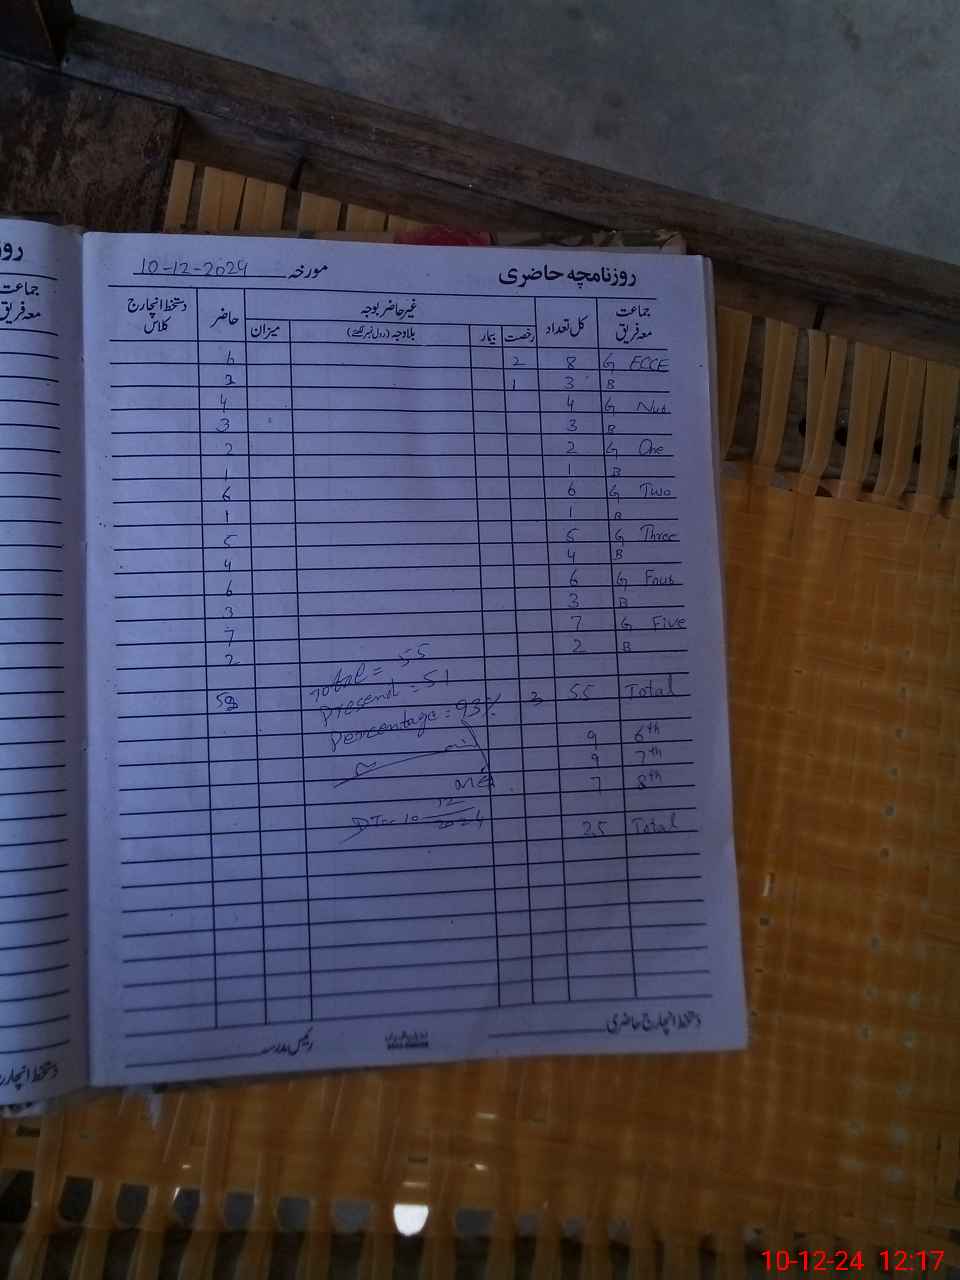 روزنامچہ حاضری
مورخہ 10-12-2024
جماعت معہ فریق کل تعداد غیر حاضر بوجہ حاضر دستخط انچارج کلاس
رخصت بیمار بلاوجہ (رول نمبر لکھئے) میزان
ECCE G 8 2 6
B 3 1 2
Nur G 4 4
B 3 3
One G 2 2
B 1 1
Two G 6 6
B 1 1
Three G 5 5
B 4 4
Four G 6 6
B 3 3
Five G 7 7
B 2 2
Total 55 3
Total = 55
Present = 51
Percentage = 93%
6th 9
7th 9
8th 7
Total 25
DT:- 10 12 2024
دستخط انچارج حاضری
رئیس مدرسہ
روز
جماعت
معہ فریق
دستخط انچارج
10-12-24 12:17